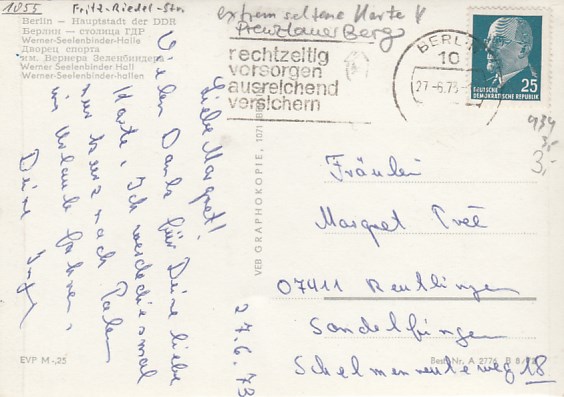 1055 Fritz-Riedel-Str.
Berlin – Hauptstadt der DDR
Берлин – столица ГДР
Werner-Seelenbinder-Halle
Дворец спорта
им. Вернера Зеленбиндера
Werner Seelenbinder Hall
Werner-Seelenbinder-hallen
extrem seltene Karte!
Prenzlauer Berg
rechtzeitig
vorsorgen
ausreichend
versichern
BERLIN
10
27.-6.73
25
DEUTSCHE
DEMOKRATISCHE REPUBLIK
934
3,-
3,-
Liebe Margret!
Vielen Dank für Deine liebe
Karte. Ich werde diesmal
nur kurz nach Polen
in Urlaub fahren.
Deine
27.6.73
VEB GRAPHOKOPIE, 1071 BERLIN
Fräulein
Margret
07411 Reutlingen
Sondelfingen
Schelmenreuteweg 18
EVP M -,25
Best.-Nr. A 2776 B 8